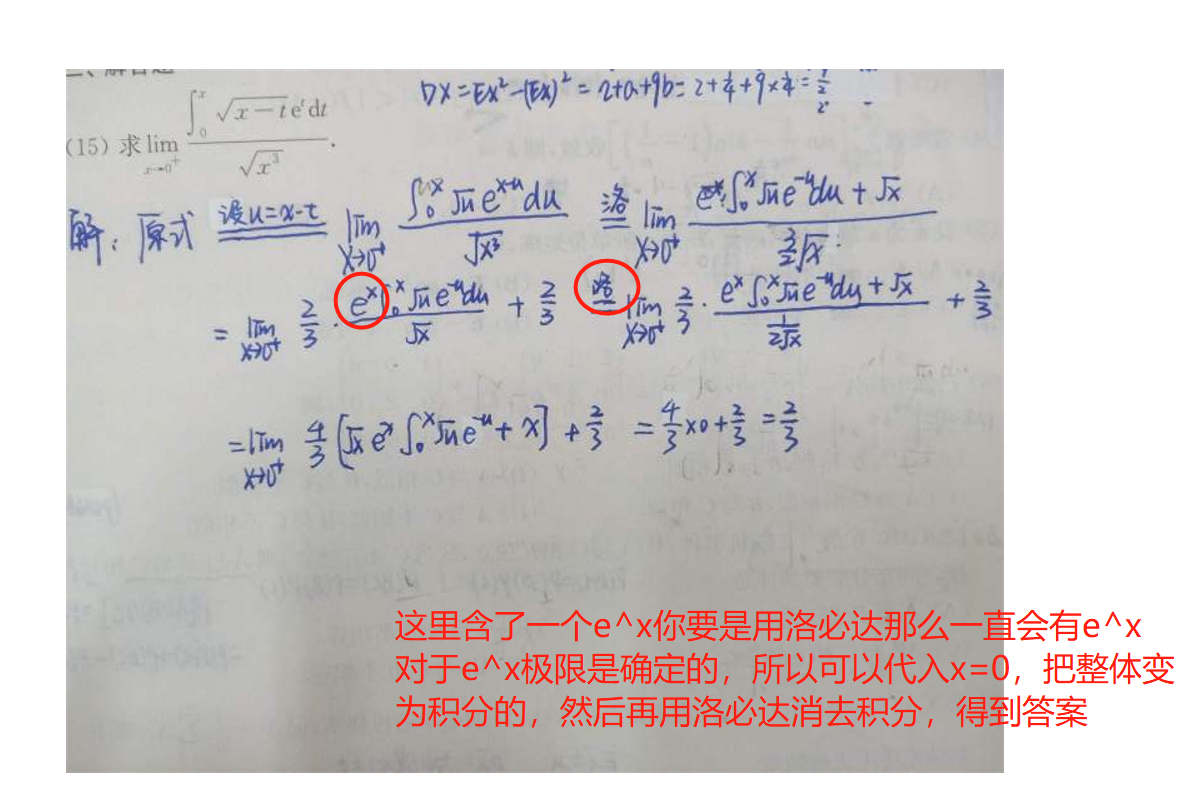 DX=EX²-(EX)²=2+a+9b=2+1/4+9×1/4=9/2
(15) 求 lim_{x→0⁺} ∫₀ˣ √(x-t) eᵗdt / √(x³) .
解:原式 设u=x-t lim_{x→0⁺} ∫₀ˣ √u e^{x-u} du / √(x³) 洛 lim_{x→0⁺} (eˣ·∫₀ˣ √u e^{-u}du + √x) / (3/2 √x)
= lim_{x→0⁺} 2/3 · eˣ∫₀ˣ √u e^{-u}du / √x + 2/3 洛 lim_{x→0⁺} 2/3 · (eˣ∫₀ˣ √u e^{-u}du + √x) / (1/(2√x)) + 2/3
= lim_{x→0⁺} 4/3 [√x eˣ ∫₀ˣ √u e^{-u} + x] + 2/3 = 4/3 × 0 + 2/3 = 2/3
这里含了一个e^x你要是用洛必达那么一直会有e^x
对于e^x极限是确定的，所以可以代入x=0，把整体变
为积分的，然后再用洛必达消去积分，得到答案